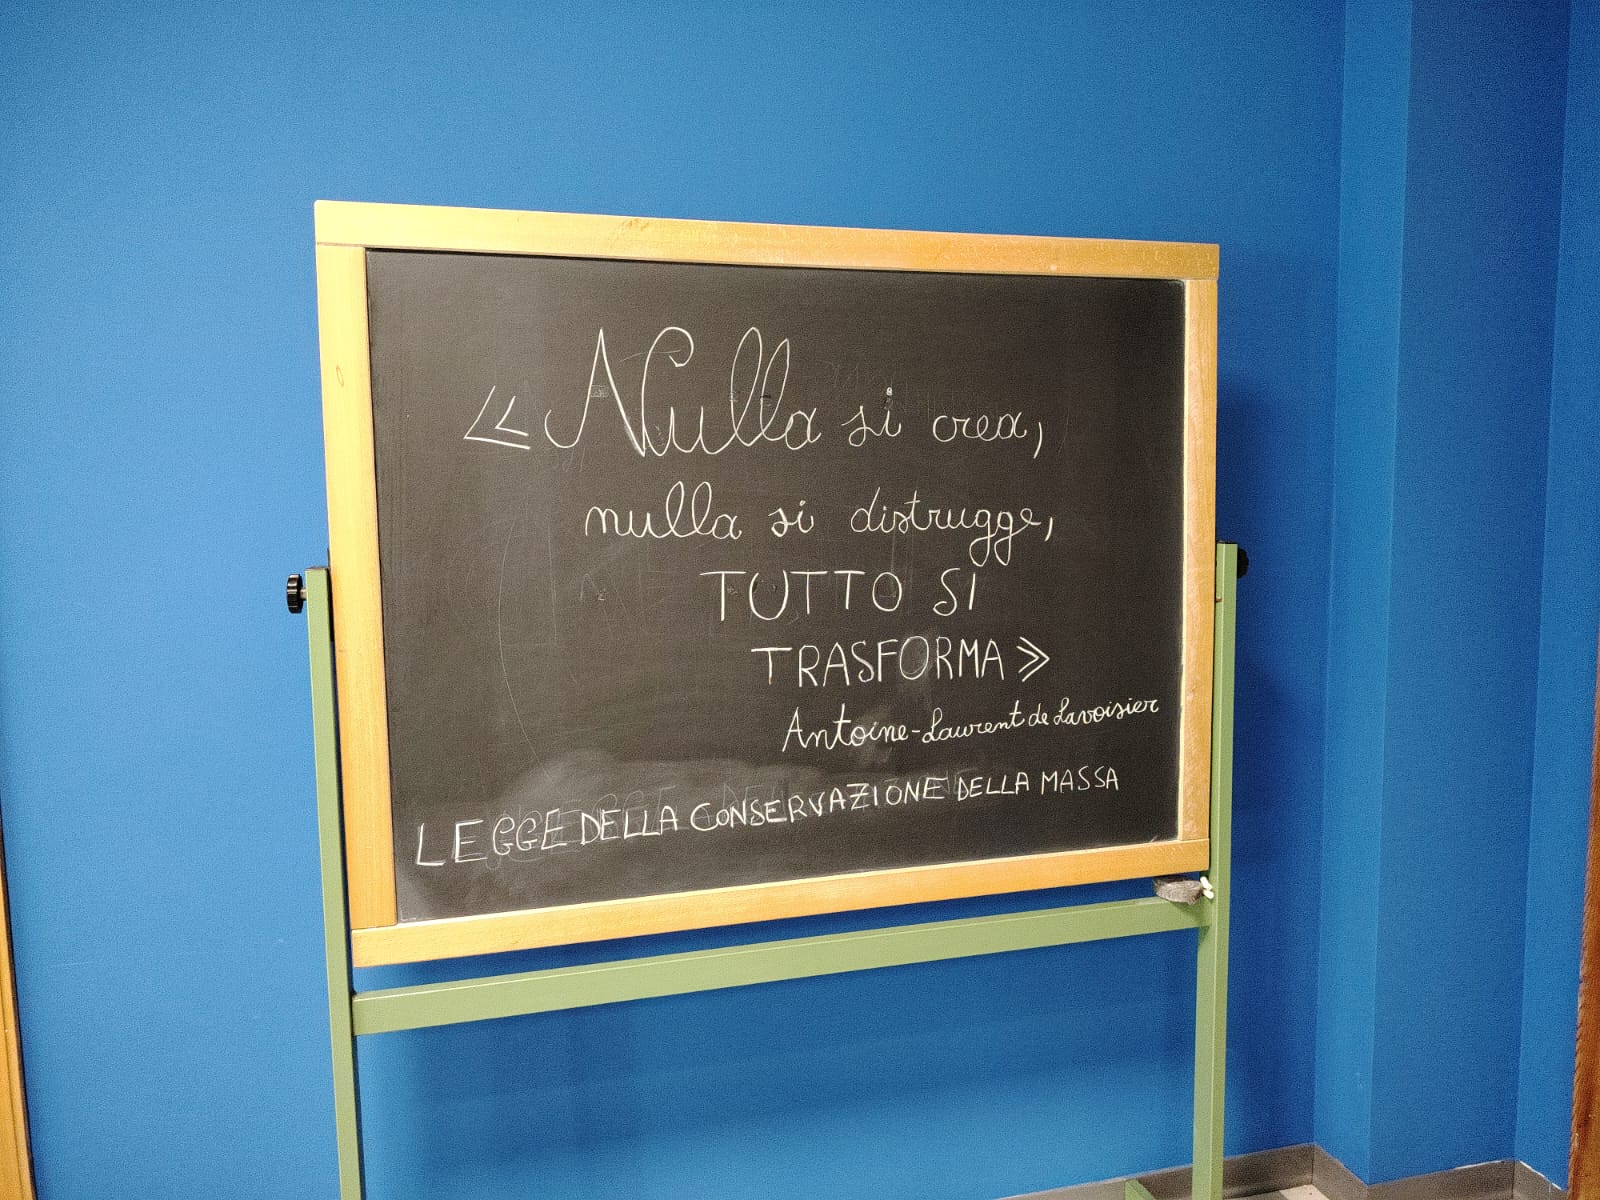 «Nulla si crea,
nulla si distrugge,
TUTTO SI
TRASFORMA»
Antoine-Laurent de Lavoisier
LEGGE DELLA CONSERVAZIONE DELLA MASSA